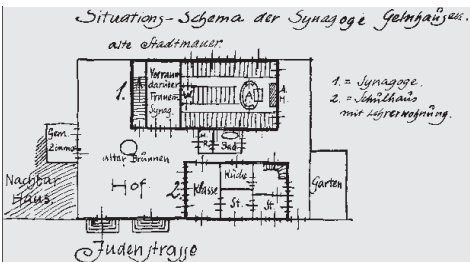 Situations-Schema der Synagoge Gelnhausen.
alte Stadtmauer.
1.
Vorraum
darüber
Frauen
Synag.
A.
1. = Synagoge.
2. = Schulhaus
mit Lehrerwohnung.
Gem.
Zimmer
alter Brunnen
Bad
Hof
2.
Klasse
Küche
St.
St.
Garten
Nachbar
Haus.
Judenstrasse